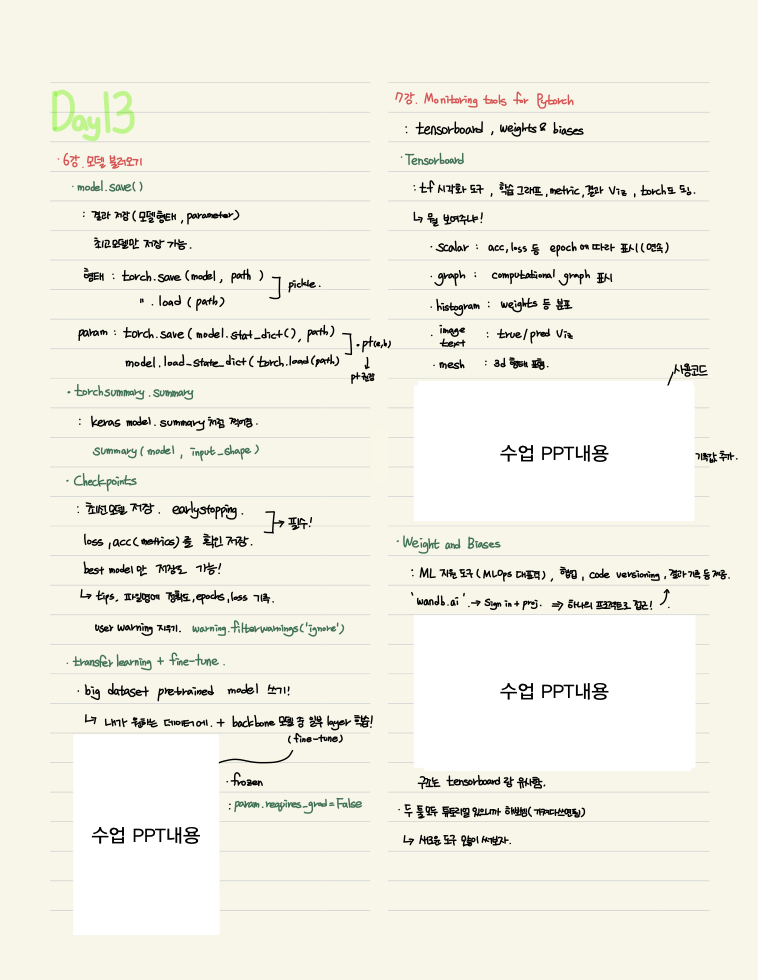 Day13
· 6강. 모델 불러오기
· model.save()
: 결과 저장 (모델형태, parameter)
최고모델만 저장 가능.
형태 : torch.save (model, path )
" . load (path)
pickle.
param : torch.save ( model.stat_dict(), path)
model.load_state_dict( torch.load(path)
pt저장
· torchsummary.summary
: keras model.summary처럼 찍어줌.
summary ( model , input_shape )
· Checkpoints
: 최선모델 저장. earlystopping.
loss, acc(metrics)를 확인 저장.
→ 필수!
best model만 저장도 가능!
↳ tips. 파일명에 정확도, epochs, loss 기록.
user warning 지우기. warning.filterwarnings('ignore')
· transfer learning + fine-tune.
· big dataset pretrained model 쓰기!
↳ 내가 원하는 데이터에. + backbone 모델 중 일부 layer 학습!
(fine-tune)
수업 PPT내용
· frozen
: param.requires_grad = False
7강. Monitoring tools for Pytorch
: tensorboard , weights & biases
· Tensorboard
: tf 시각화 도구, 학습 그래프, metric, 결과 Viz , torch도 됨.
↳ 뭘 보여주냐!
· scalar : acc, loss 등 epoch에 따라 표시 (연속)
· graph : computational graph 표시
· histogram : weights 등 분포
· image text : true/pred Viz
· mesh : 3d 형태 표현.
사용코드
수업 PPT내용
기록값 추가.
· Weight and Biases
: ML 지원 도구 (MLOps 대표적) , 협업, code versioning, 결과 기록 등 제공.
'wandb.ai'. → Sign in + proj. ⇒ 하나의 프로젝트로 접근!
수업 PPT내용
구조는 tensorboard 랑 유사함.
· 두 툴 모두 튜토리얼 있으니까 해보셈 (가져다쓰면됨)
↳ 새로운 도구 많이 써보자.